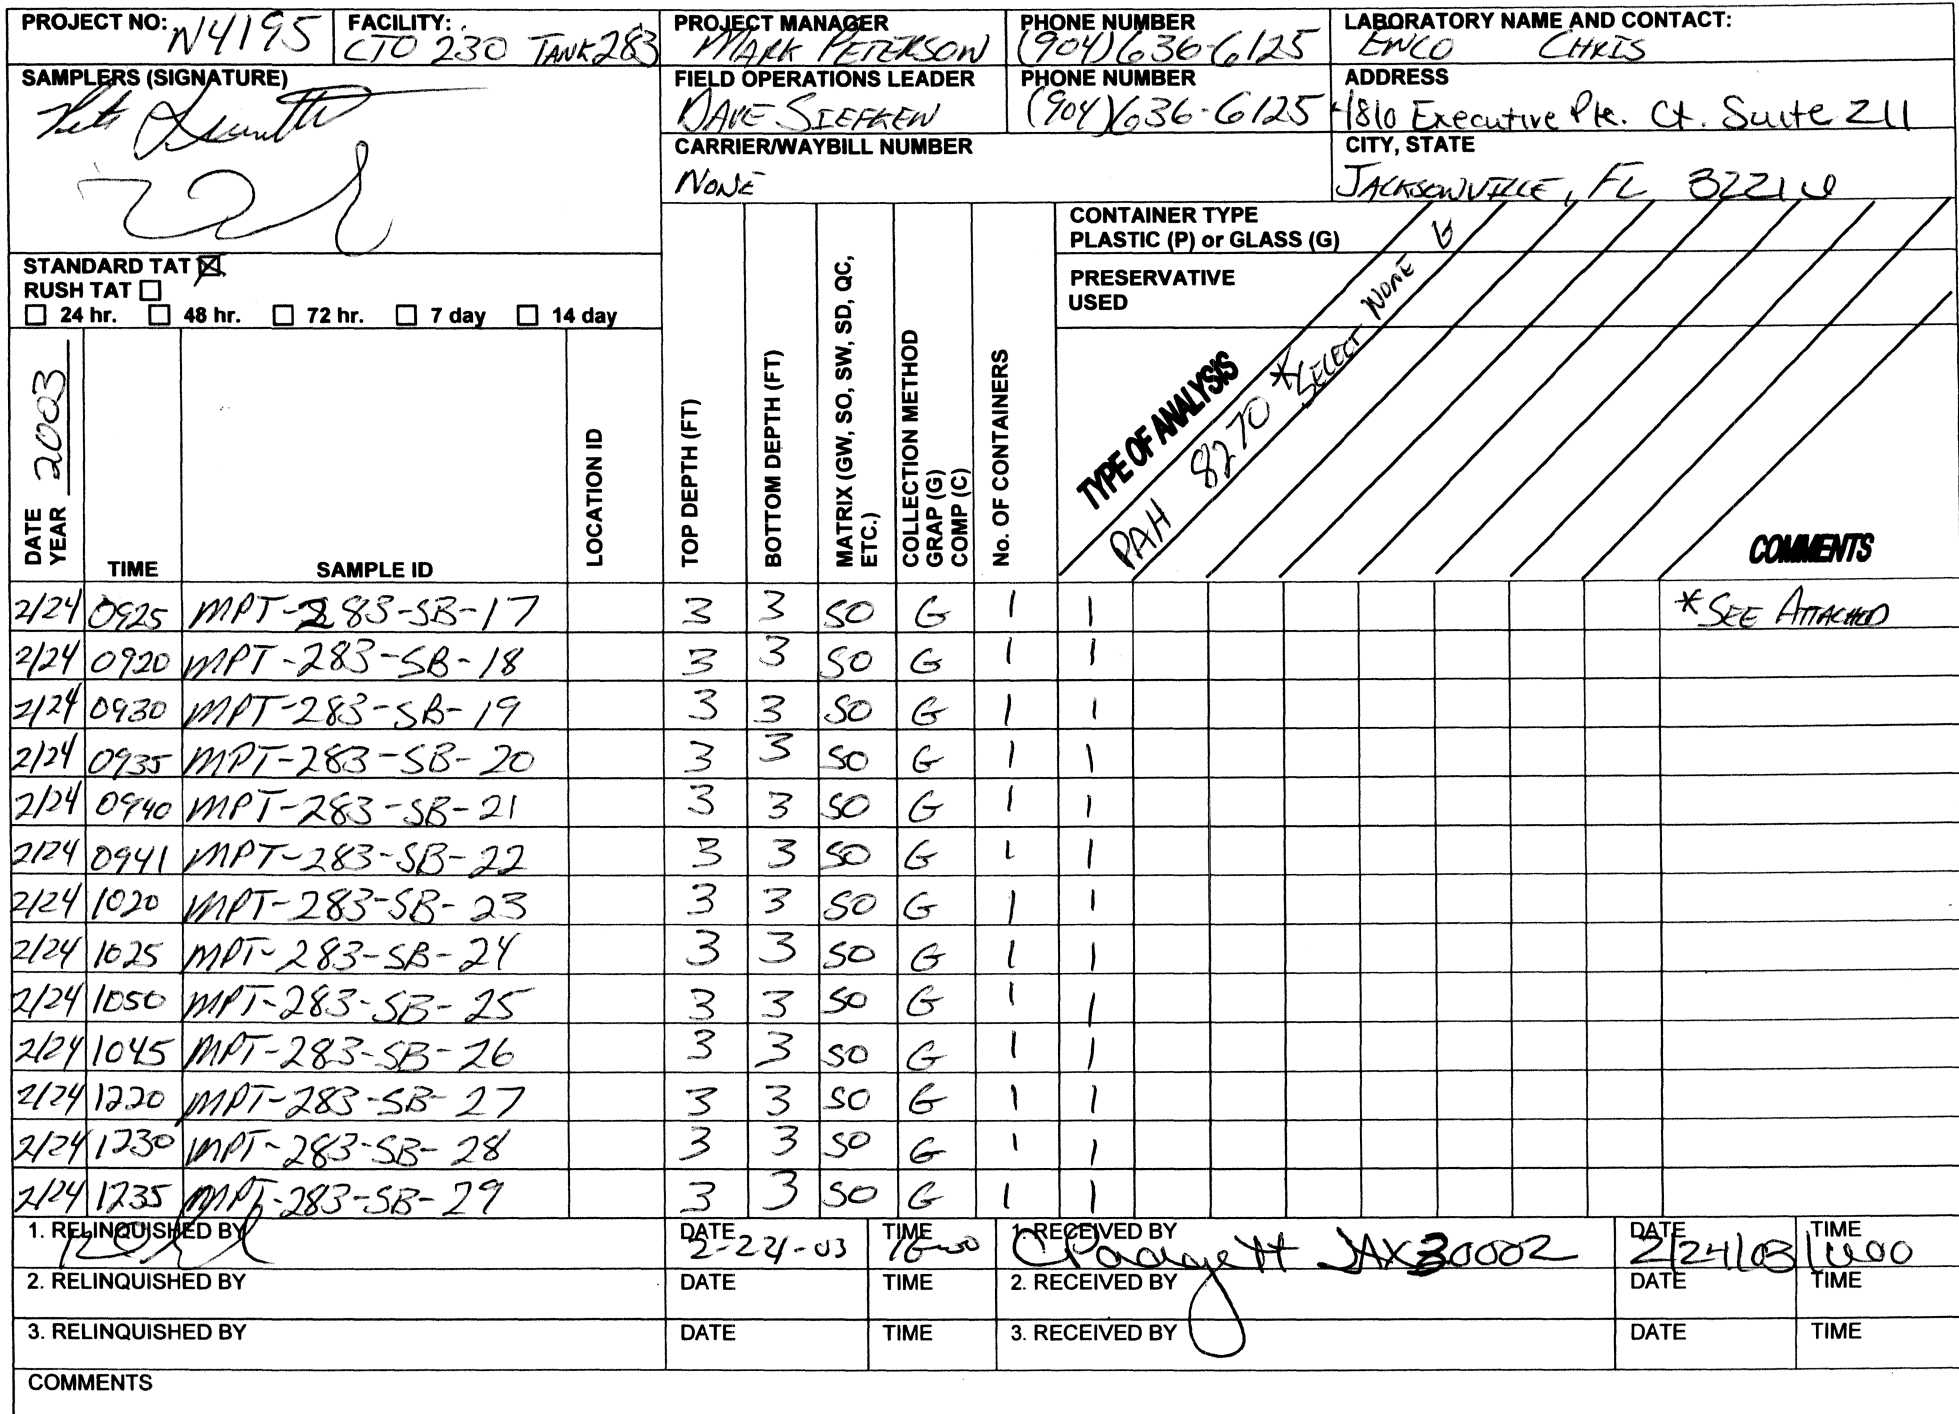 PROJECT NO: N4195 FACILITY: CTO 230 TANK 283 PROJECT MANAGER MARK PETERSON PHONE NUMBER (904) 636-6125 LABORATORY NAME AND CONTACT: ENCO CHRIS
SAMPLERS (SIGNATURE) FIELD OPERATIONS LEADER DAVE SIEFKEN PHONE NUMBER (904) 636-6125 ADDRESS 4810 Executive Pk. Ct. Suite 211
CARRIER/WAYBILL NUMBER NONE CITY, STATE JACKSONVILLE, FL 32216
STANDARD TAT ☒
RUSH TAT ☐
☐ 24 hr. ☐ 48 hr. ☐ 72 hr. ☐ 7 day ☐ 14 day
CONTAINER TYPE
PLASTIC (P) or GLASS (G) G
PRESERVATIVE
USED NONE
TYPE OF ANALYSIS
PAH 8270 *SELECT
DATE
YEAR 2003
TIME
SAMPLE ID
LOCATION ID
TOP DEPTH (FT)
BOTTOM DEPTH (FT)
MATRIX (GW, SO, SW, SD, QC,
ETC.)
COLLECTION METHOD
GRAP (G)
COMP (C)
No. OF CONTAINERS
COMMENTS
2/24 0925 MPT-283-SB-17 3 3 SO G 1 1 *SEE ATTACHED
2/24 0920 MPT-283-SB-18 3 3 SO G 1 1
2/24 0930 MPT-283-SB-19 3 3 SO G 1 1
2/24 0935 MPT-283-SB-20 3 3 SO G 1 1
2/24 0940 MPT-283-SB-21 3 3 SO G 1 1
2/24 0941 MPT-283-SB-22 3 3 SO G 1 1
2/24 1020 MPT-283-SB-23 3 3 SO G 1 1
2/24 1025 MPT-283-SB-24 3 3 SO G 1 1
2/24 1050 MPT-283-SB-25 3 3 SO G 1 1
2/24 1045 MPT-283-SB-26 3 3 SO G 1 1
2/24 1220 MPT-283-SB-27 3 3 SO G 1 1
2/24 1230 MPT-283-SB-28 3 3 SO G 1 1
2/24 1235 MPT-283-SB-29 3 3 SO G 1 1
1. RELINQUISHED BY DATE 2-24-03 TIME 1600 1. RECEIVED BY CPadgett JAX30002 DATE 2/24/03 TIME 1600
2. RELINQUISHED BY DATE TIME 2. RECEIVED BY DATE TIME
3. RELINQUISHED BY DATE TIME 3. RECEIVED BY DATE TIME
COMMENTS